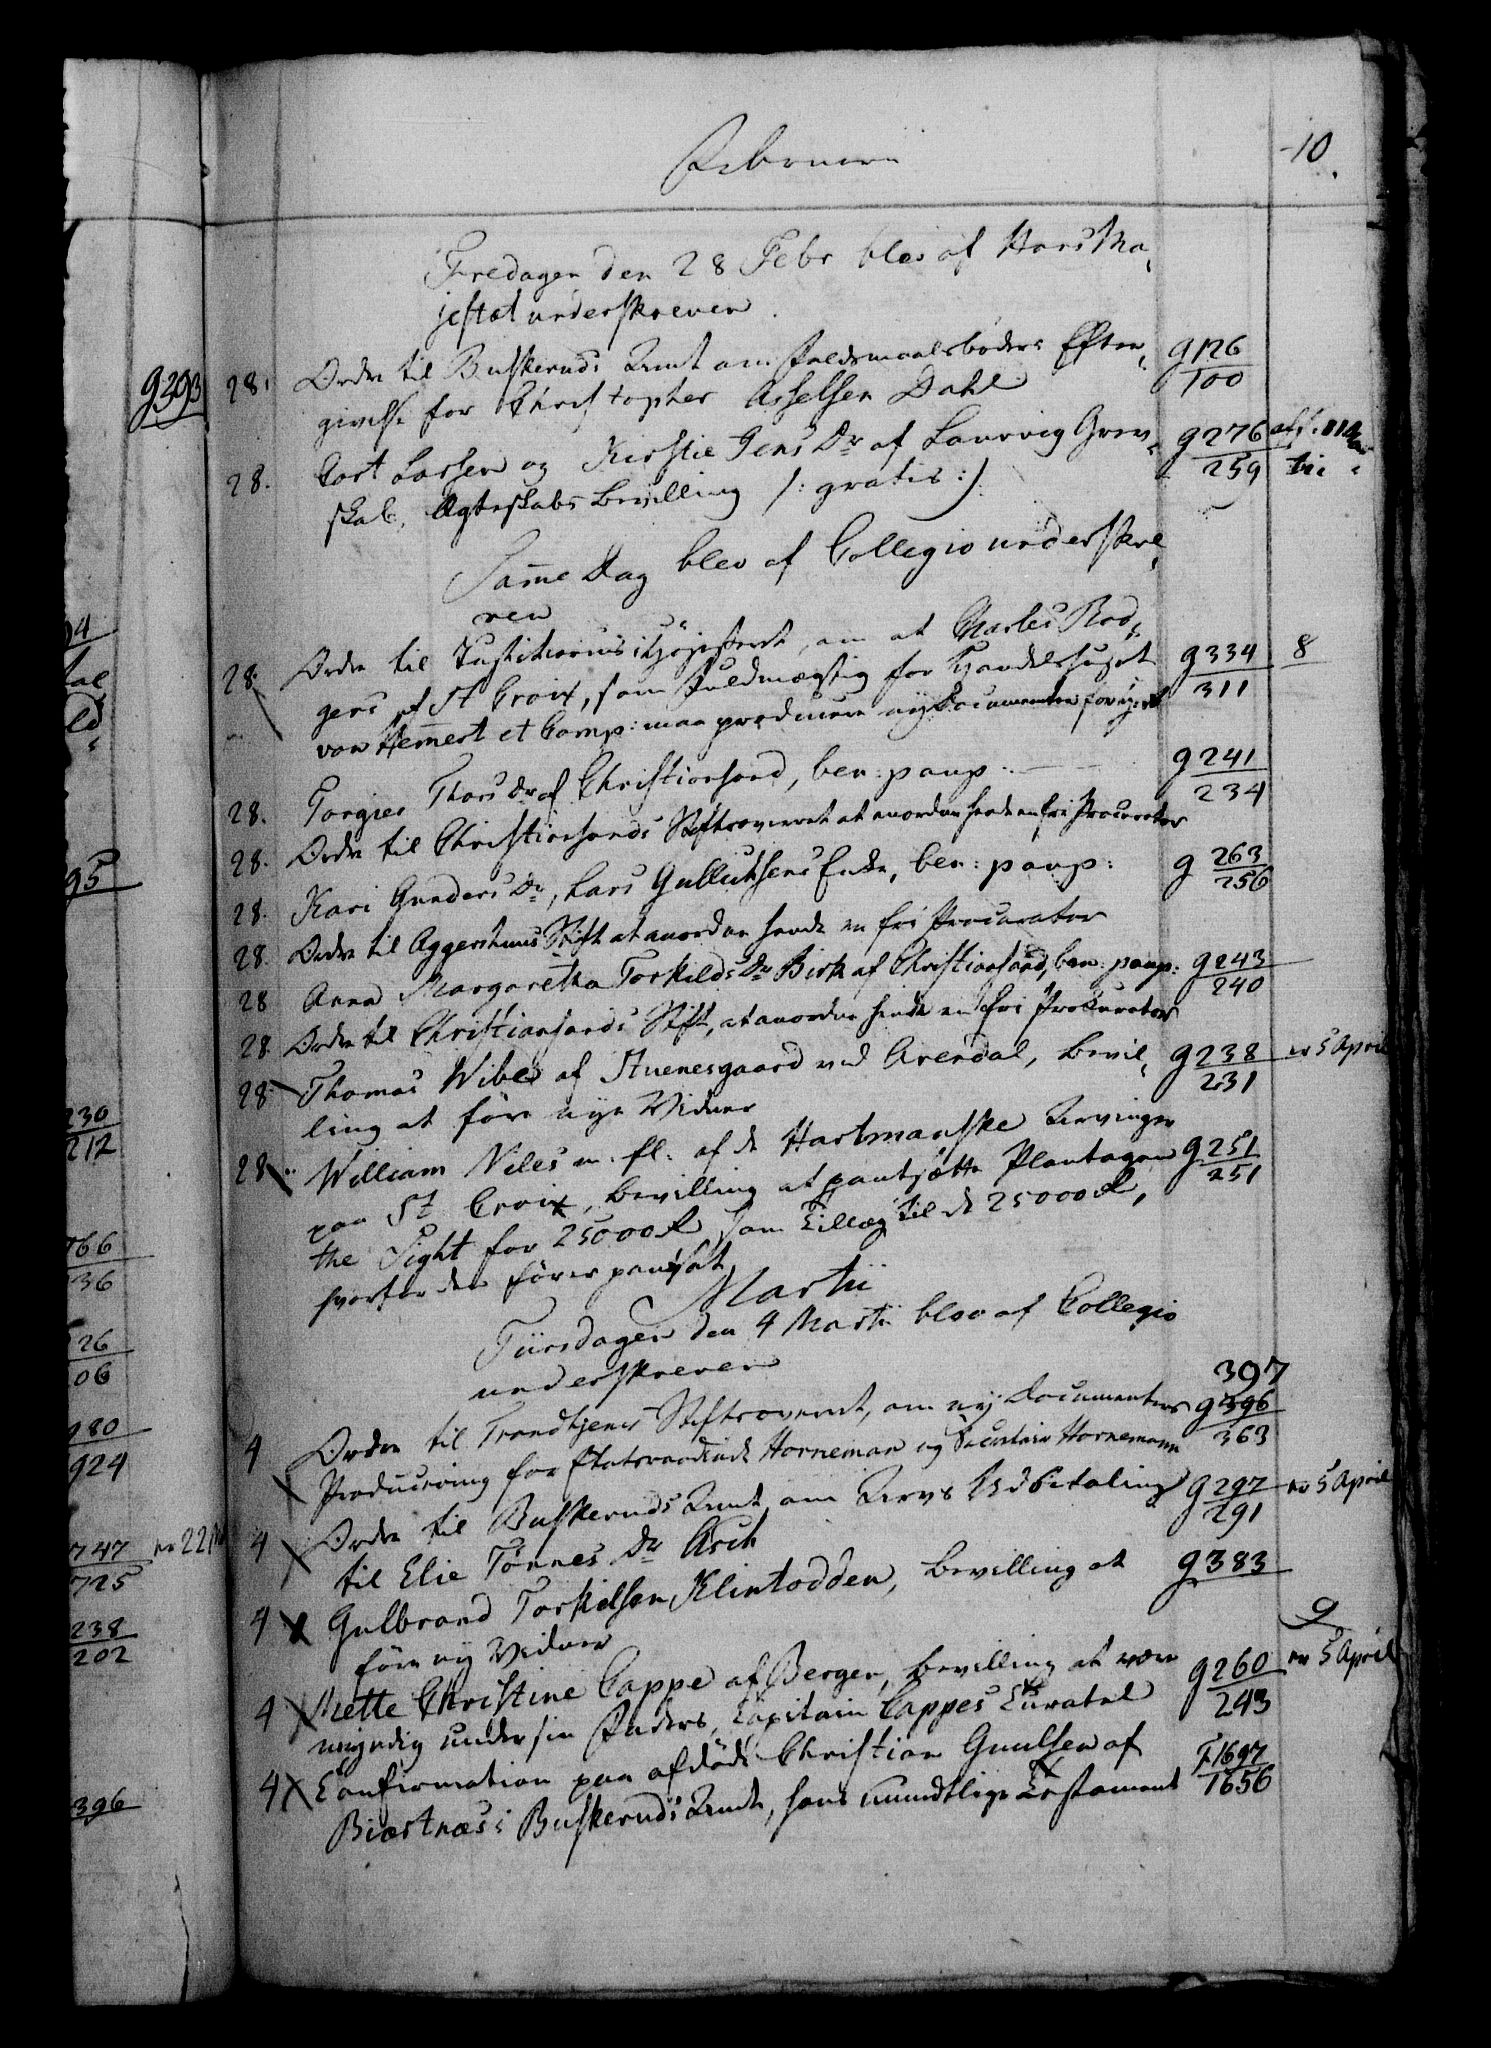 Februarii
10.
Fredagen den 28 Febr blev af Hans Ma,
jestæt underskreven.
28. Ordre til Buskeruds Amt om Faldsmaalsbøders Efter, g 126
givelse for Christopher Asselsen Dahl 100
28. Cort Larsen og Kirstie Jens Dr af Laurvig Grev, g 276
skab, Ægteskabs Bevilling /: gratis :/ 259
Samme Dag blev af Collegio underskre,
ven
28. Ordre til Justitiarius i Højesteret, om at Charles Rod, g 334 8
gers af St Croix, som Fuldmægtig for Handelshuset 311
von Hemmert et Comp: maa producere ny Documenter for
28. Torgier Thors Dr af Christiansand, ben: paup: g 241
234
28. Ordre til Christiansands Stiftsøvrighed at anordne hende en fri Procurator
28. Kari Gunders Dr, Lars Gulluchsens Enke, ben: paup: g 263
256
28. Ordre til Aggershuus Stift at anordne hende en fri Procurator
28 Anna Margaretha Torkilds Dr Birk af Christiansand, ben: paup: g 243
240
28 Ordre til Christiansands Stift, at anordne hende en fri Prokurator
28. Thomas Wibes af Stuenesgaard ved Arendal, Bevil, g 238 5 April
ling at føre nye Vidner 231
28. William Niles m. fl. af de Hartmanske Arvinger
paa St Croix, Bevilling at pantsætte Plantagen g 251
the Sight for 25000 som Tillæg til de 25000, 251
hvorfor den førend pantsat
Martii
Tiirsdagen den 4 Martii blev af Collegio
underskreven
397
4 Ordre til Trondhjems Stiftsøvrighed, om ny Documenters g 396
Producering for Etatsraadinde Horneman og Secretair Hornemann 363
4 Ordre til Buskeruds Amt om Arvs Udbetaling g 297 5 April
til Elie Tønnes Dr Asch 291
4 Gulbrand Torkilsen Klintodden, Bevilling at g 383
føre ny Vidner 9
4 Mette Christine Cappe af Bergen, Bevilling at være g 260 5 April
myndig under sin Faders, Capitain Cappes Curatel 243
4 Confirmation paa afdøde Christian Guulsen af F. 1697
Biørtnæs i Buskeruds Amt, hans mundtlige Testament 1656
g 393
95
230
212
766
36
26
06
980
924
747
725
238
202
396